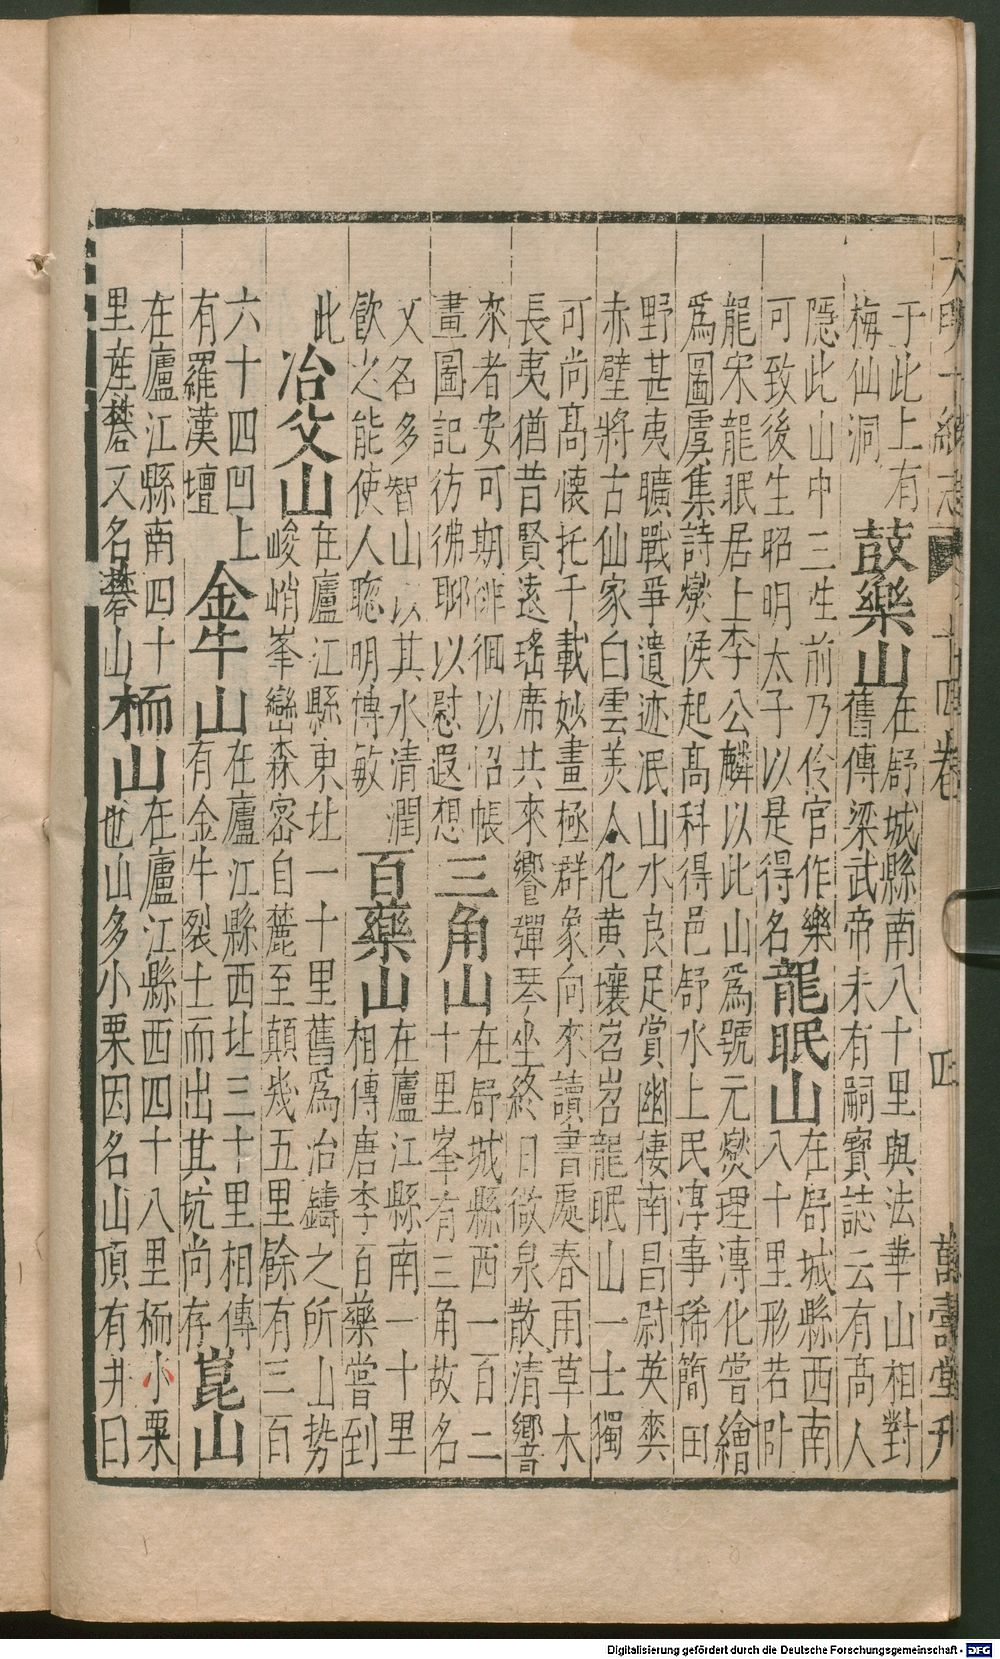 大明一統志 十四卷 四 萬壽堂刋
于此上有
梅仙洞
鼓樂山
在舒城縣南八十里與法華山相對
舊傳梁武帝未有嗣寶誌云有高人
隱此山中三生前乃伶官作樂
可致後生昭明太子以是得名
龍眠山
在舒城縣西南
八十里形若卧
龍宋龍眠居士李公麟以此山爲號元爕理溥化嘗繪
爲圖虞集詩爕侯起高科得邑舒水上民淳事稀簡田
野甚夷曠戰爭遺迹泯山水良足賞幽棲南昌尉英爽
赤壁將古仙家白雲美人化黄壤岧岧龍眠山一士獨
可尚高懐托千載妙畫極群象向來讀書處春雨草木
長夷猶昔賢遠瑤席共來饗彈琴坐終日微泉散清響
來者安可期徘徊以怊悵
畫圖記彷彿聊以慰遐想
三角山
在舒城縣西一百二
十里峯有三角故名
又名多智山以其水清潤
飲之能使人聦明博敏
百藥山
在廬江縣南一十里
相傳唐李百藥嘗到
此
冶父山
在廬江縣東北一十里舊爲冶鑄之所山势
峻峭峯巒森宻自麓至顛幾五里餘有三百
六十四凹上
有羅漢壇
金牛山
在廬江縣西北三十里相傳
有金牛裂土而出其坑尚存
崑山
在廬江縣南四十
里産礬又名礬山
栭山
在廬江縣西四十八里栭小栗
也山多小栗因名山頂有井曰
Digitalisierung gefördert durch die Deutsche Forschungsgemeinschaft - DFG